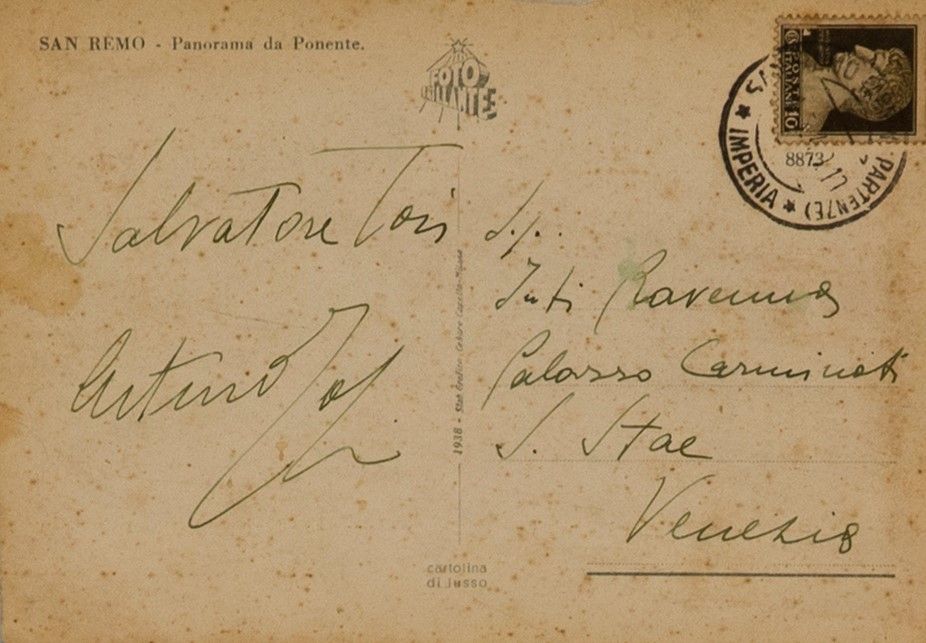 SAN REMO - Panorama da Ponente.
FOTO
BRILLANTE
POSTE ITALIANE
10
SAN
PARTENZE)
* IMPERIA *
8873
Salvatore Tosi
Arturo Tosi
S.p.
Juti Ravenna
Palazzo Carminati
S. Stae
Venezia
1938 - Stab. Grafico Cesare Capello - Milano
cartolina
di lusso